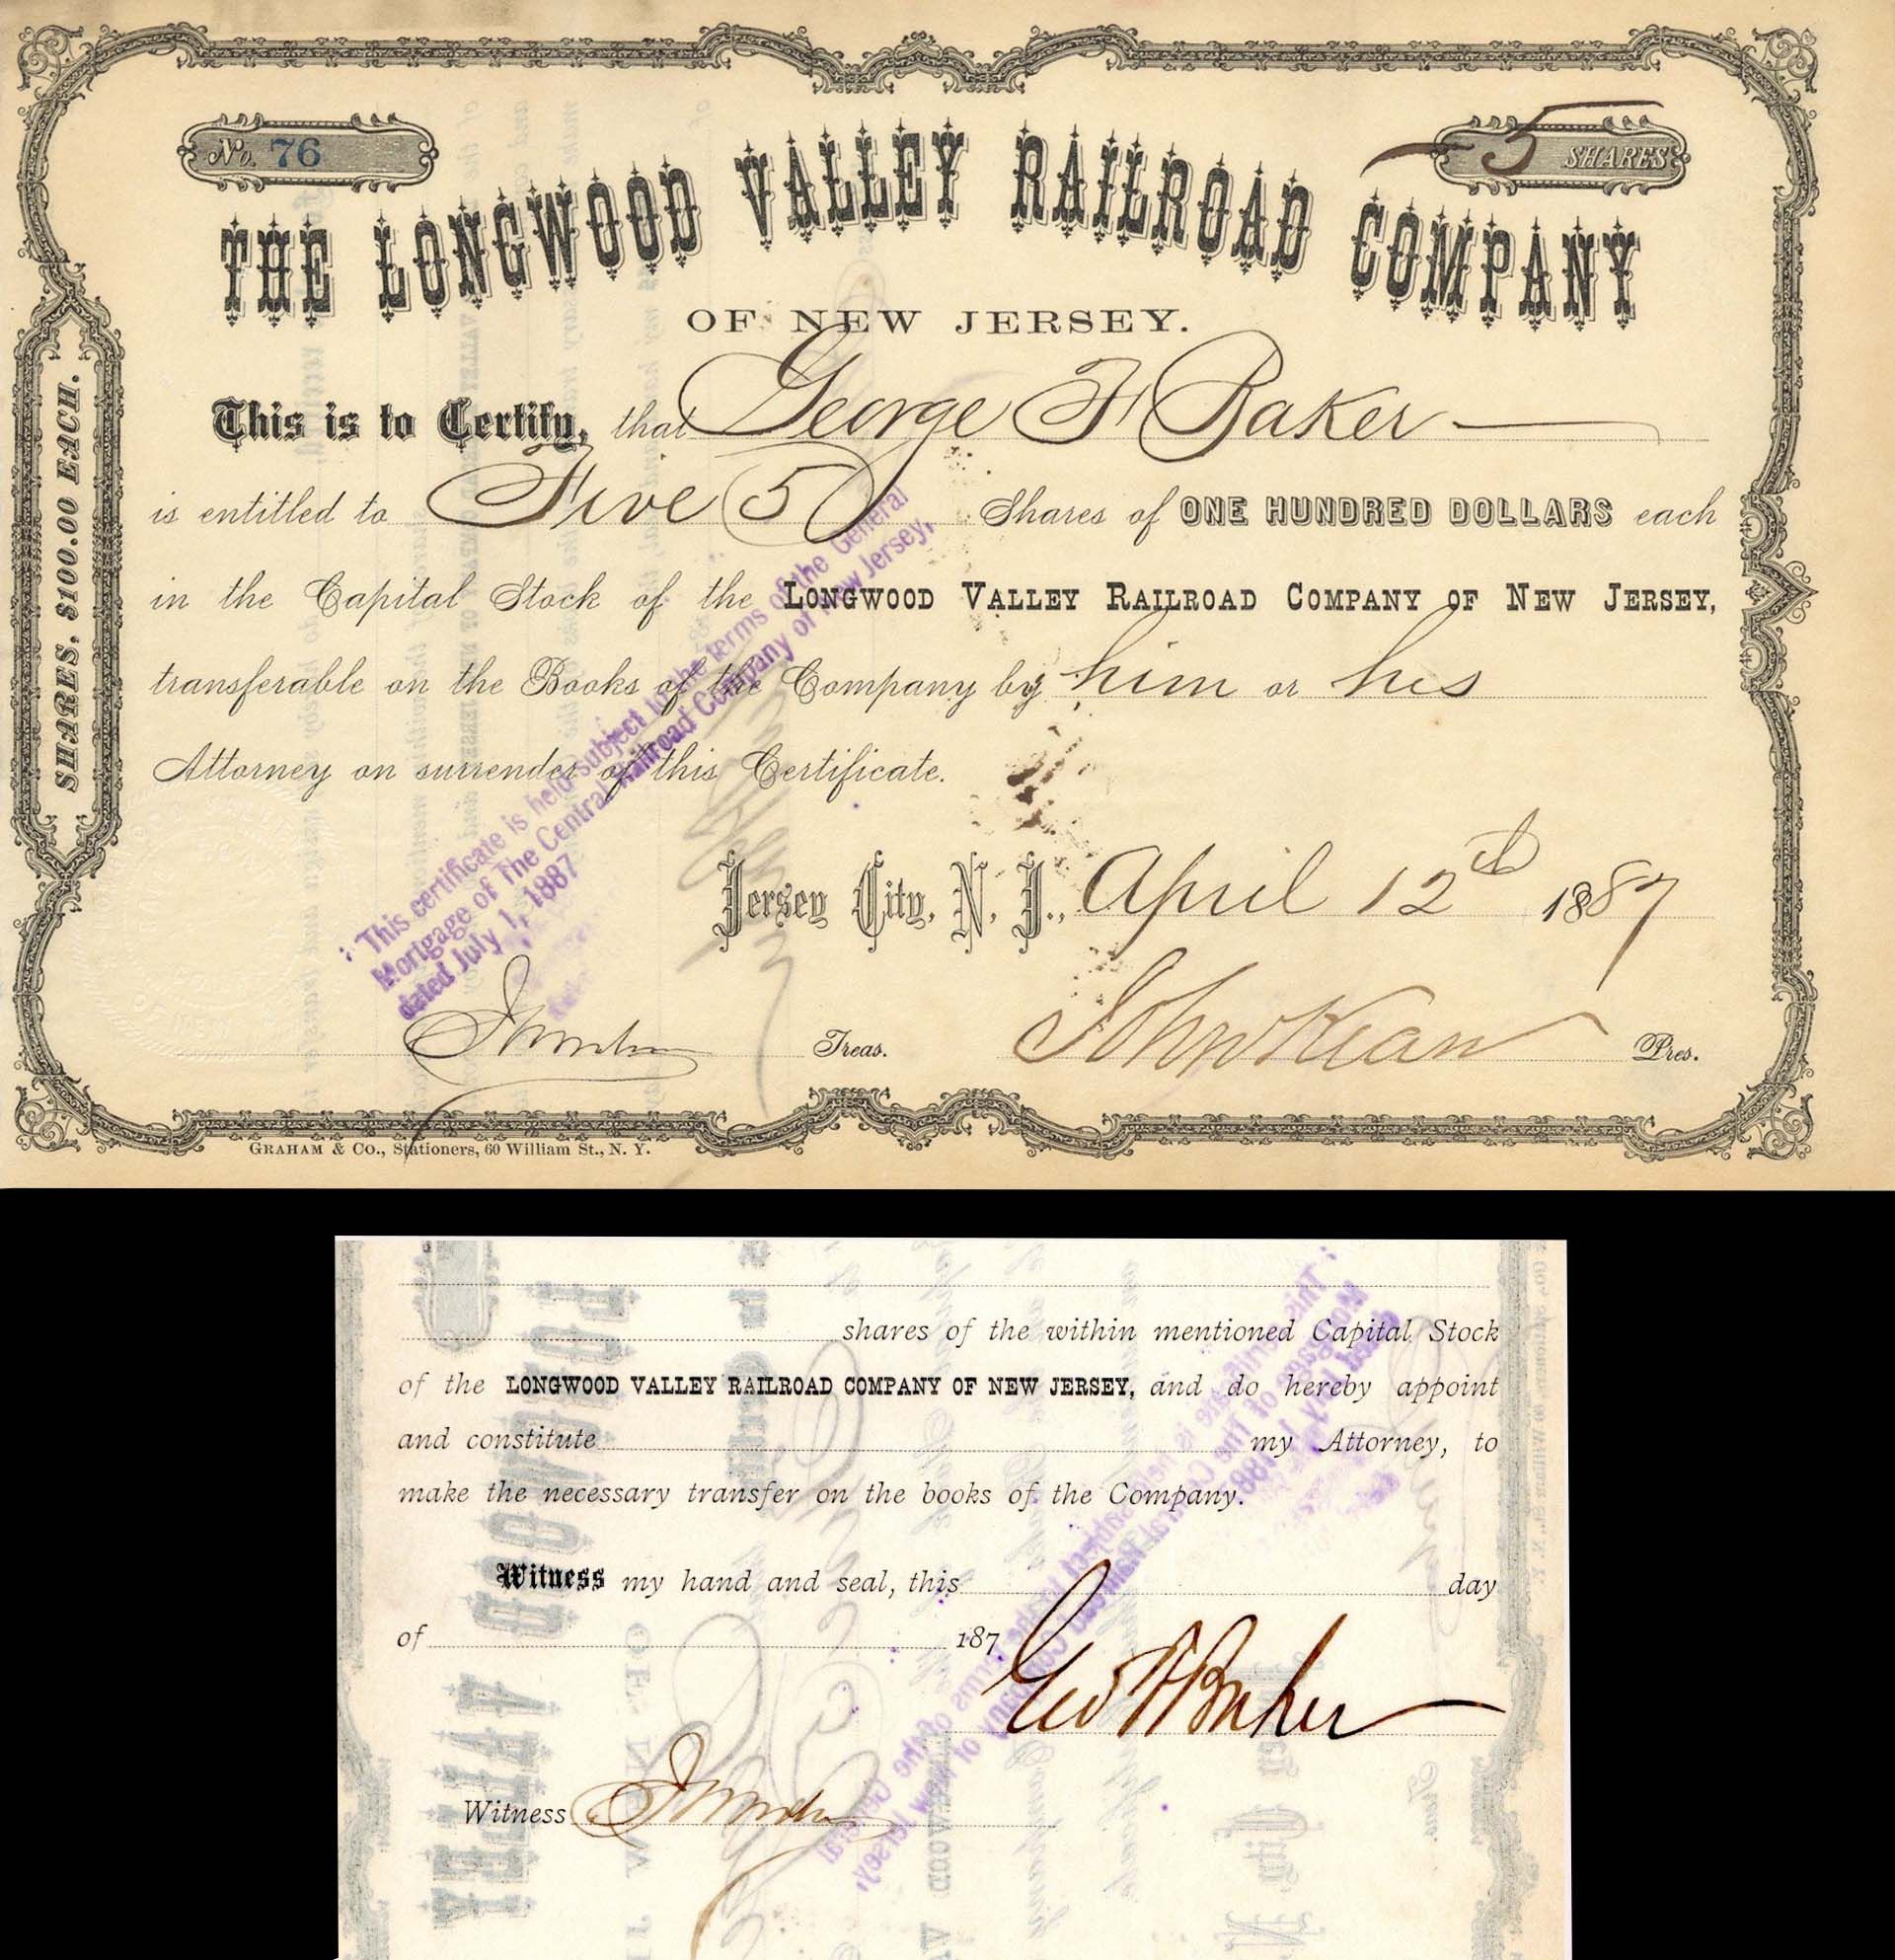 No. 76
5 SHARES
THE LONGWOOD VALLEY RAILROAD COMPANY
OF NEW JERSEY.
SHARES, $100.00 EACH.
This is to Certify, that George F Baker
is entitled to Five (5) Shares of ONE HUNDRED DOLLARS each
in the Capital Stock of the LONGWOOD VALLEY RAILROAD COMPANY OF NEW JERSEY,
transferable on the Books of the Company by him or his
Attorney on surrender of this Certificate.
This certificate is held subject to the terms of the General
Mortgage of The Central Railroad Company of New Jersey,
dated July 1, 1887
Jersey City, N. J., April 12th 1887
Treas. John Kean Pres.
GRAHAM & CO., Stationers, 60 William St., N. Y.
shares of the within mentioned Capital Stock
of the LONGWOOD VALLEY RAILROAD COMPANY OF NEW JERSEY, and do hereby appoint
and constitute my Attorney, to
make the necessary transfer on the books of the Company.
Witness my hand and seal, this day
of 187
Geo F Baker
Witness